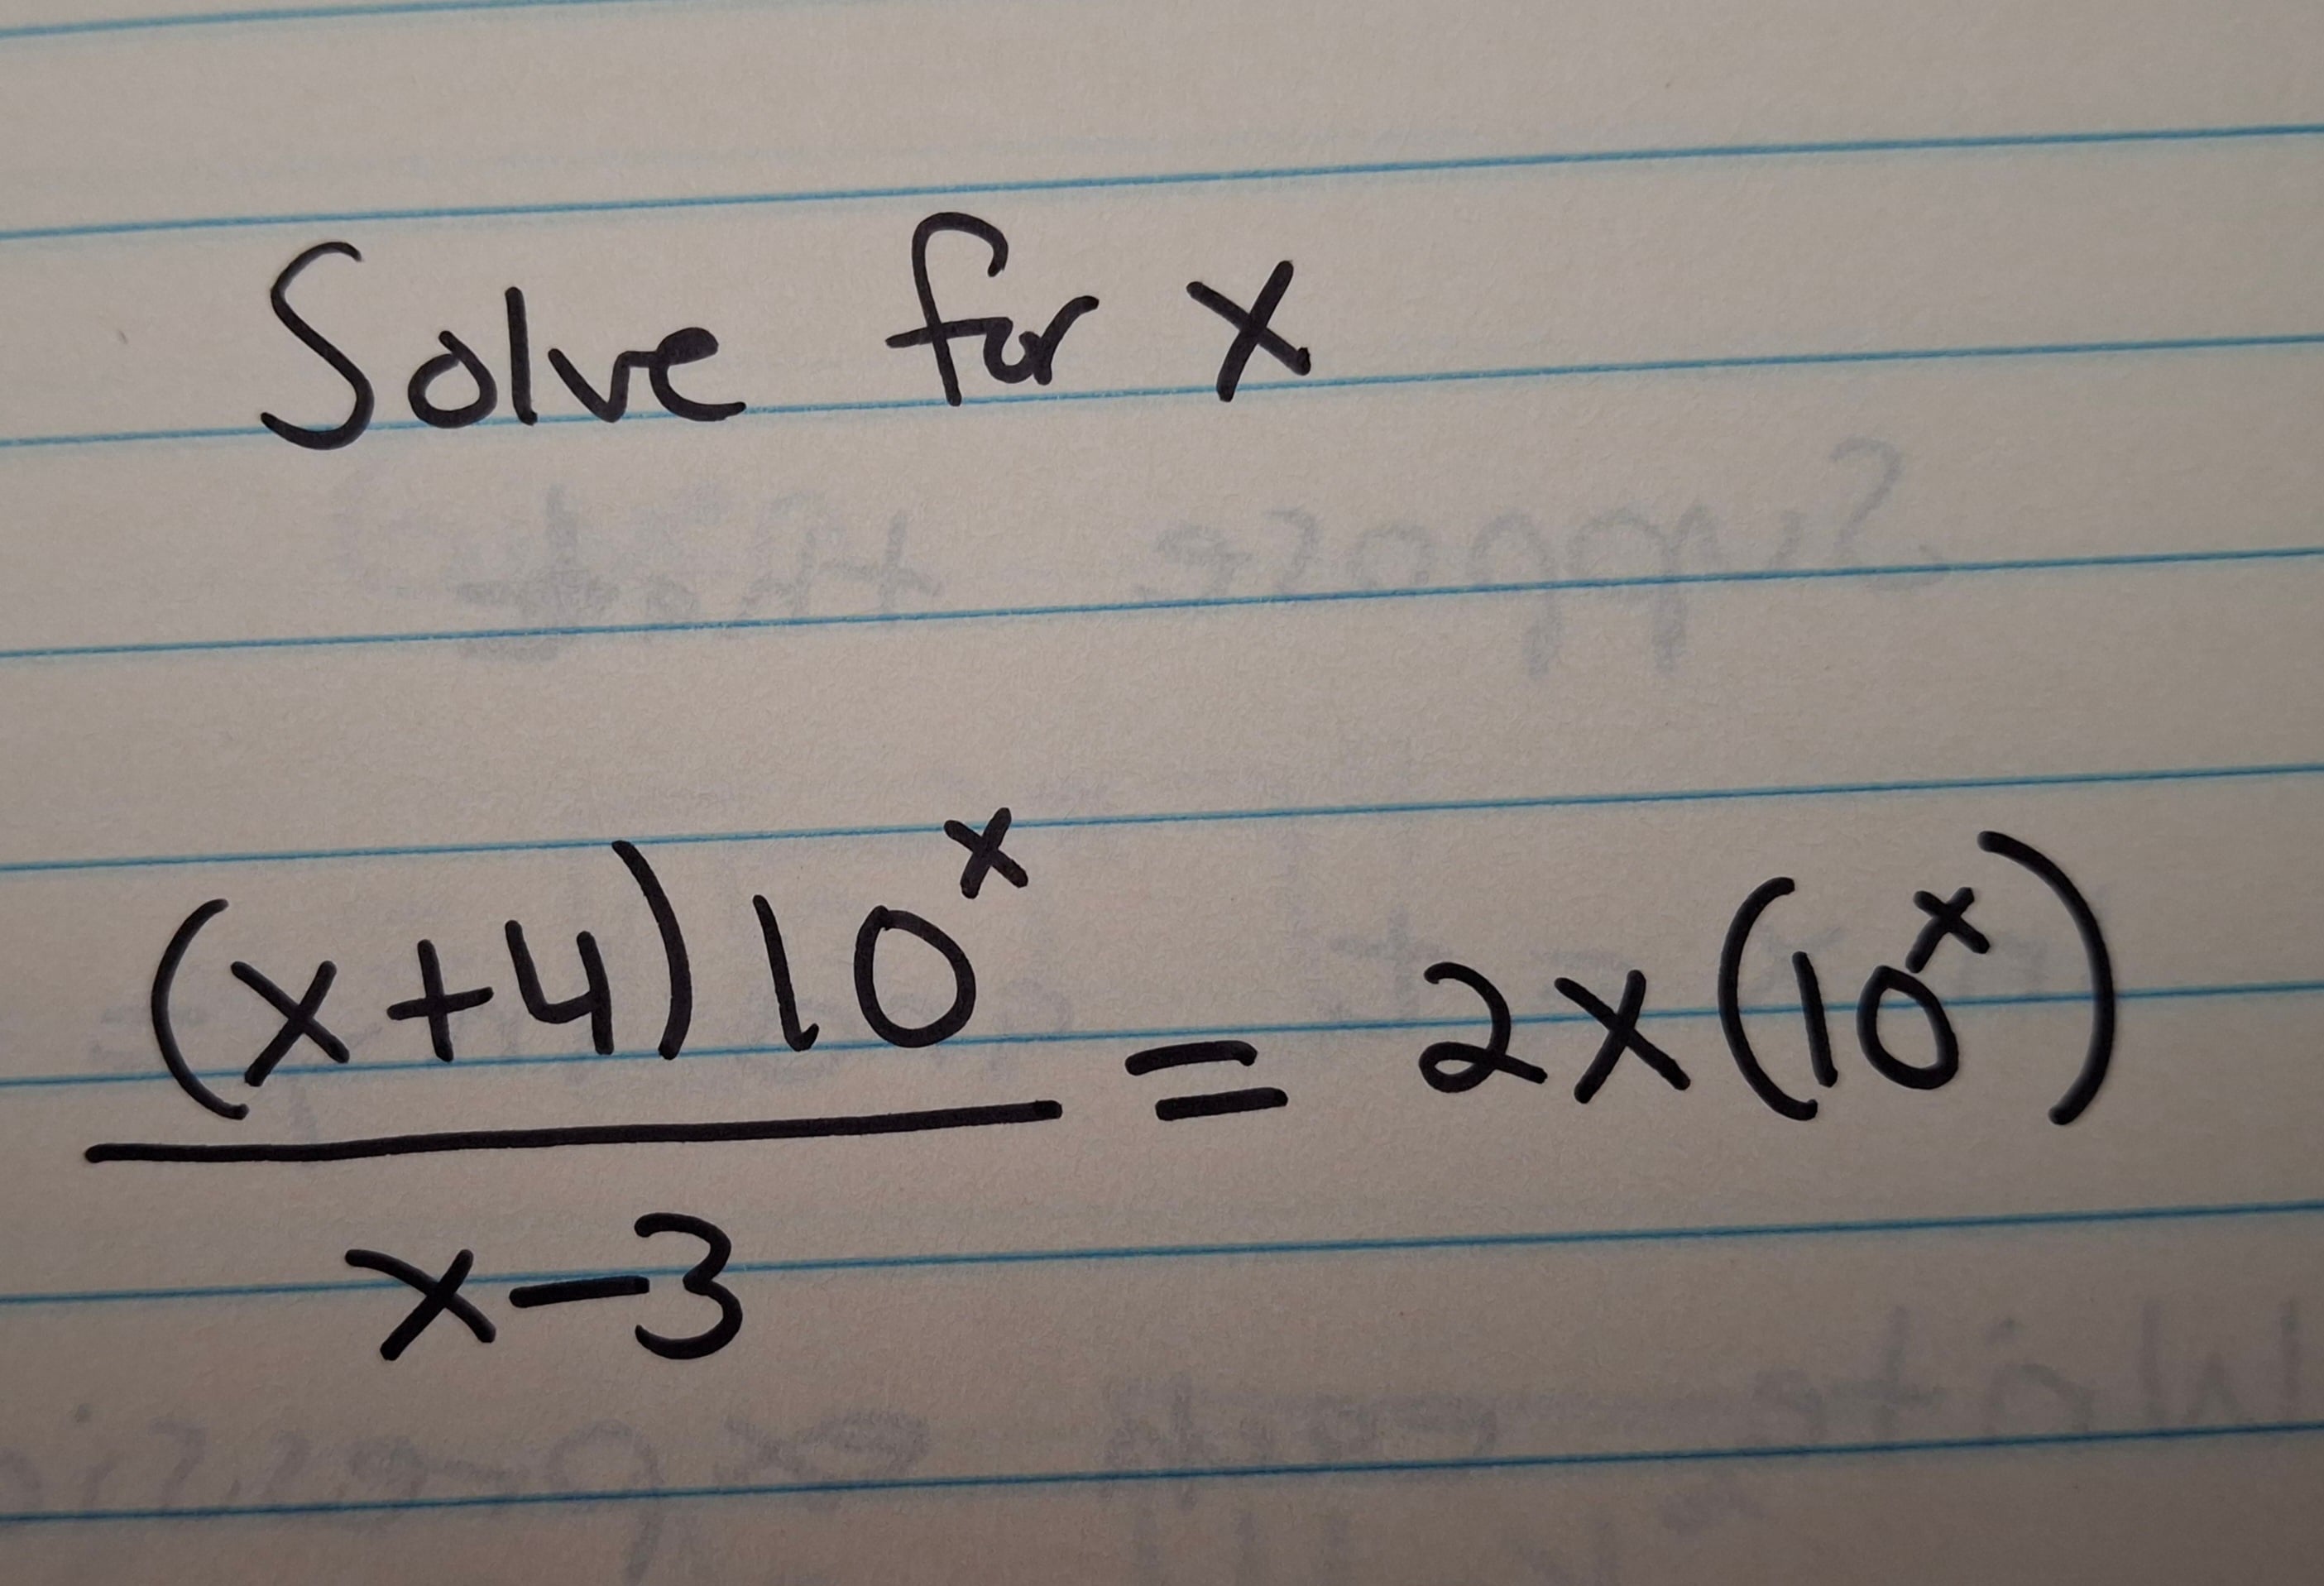 Solve for x
(x+4)10^x / x-3 = 2x(10^x)